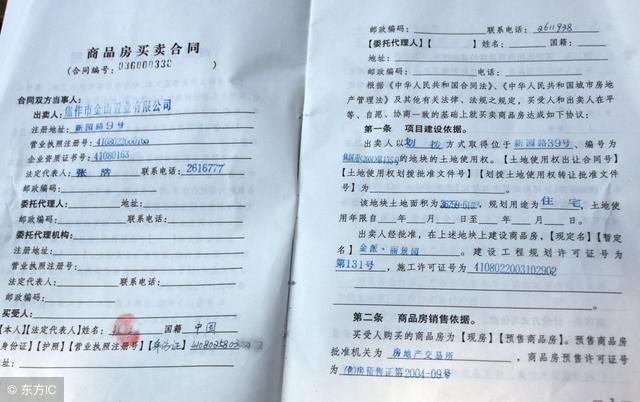 商品房买卖合同
(合同编号: 036000330 )
合同双方当事人:
出卖人: 焦作市金山置业有限公司
注册地址: 新园路9号
营业执照注册号: 4108022000165
企业资质证书号: 41080163
法定代表人: 张浩 联系电话: 2616777
邮政编码:
委托代理人: 地址:
邮政编码: 联系电话:
委托代理机构:
注册地址:
营业执照注册号:
法定代表人: 联系电话:
邮政编码:
买受人:
【本人】【法定代表人】姓名: 国籍 中国
【身份证】【护照】【营业执照注册号】【身份证】
地址:
© 东方IC
邮政编码: 联系电话: 2611938
【委托代理人】【 】姓名: 国籍:
地址:
邮政编码: 电话:
根据《中华人民共和国合同法》、《中华人民共和国城市房地
产管理法》及其他有关法律、法规之规定, 买受人和出卖人在平
等、自愿、协商一致的基础上就买卖商品房达成如下协议:
第一条 项目建设依据。
出卖人以 划拨 方式取得位于 新园路39号 、编号为
的地块的土地使用权。【土地使用权出让合同号】
【土地使用权划拨批准文件号】【划拨土地使用权转让批准文件
号】为 。
该地块土地面积为 , 规划用途为 住宅 , 土地使
用年限自 年 月 日至 年 月 日。
出卖人经批准, 在上述地块上建设商品房, 【现定名】【暂定
名】 金派·丽景园 。建设工程规划许可证号为
第131号 , 施工许可证号为 4108022003102902
第二条 商品房销售依据。
买受人购买的商品房为【现房】【预售商品房】。预售商品房
批准机关为 房地产交易所 , 商品房预售许可证号
为 房预售证第2004-09号